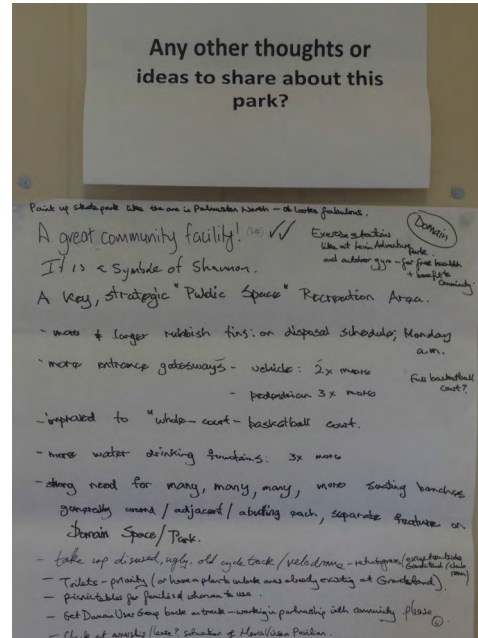 Any other thoughts or
ideas to share about this
park?
Paint up skatepark like the one in Palmerston North - it looks fabulous.
Domain
A great community facility! ✓✓
Exercise stations
like at Adventure Park
and outdoor gym - for free health
+ benefit to community
It is a Symbol of Shannon.
A Key, strategic "Public Space" Recreation Area.
- more & larger rubbish tins: on disposal schedule; Monday
a.m.
- more entrance gateways - vehicle: 2x more
- pedestrian 3x more
Full basketball
court?
- improved to "whole-court-basketball court.
- more water drinking fountains: 3x more
- strong need for many, many, many, more seating benches
generally around / adjacent / abutting each, separate feature on
Domain Space/Park.
- take up disused, ugly, old cycle track / velodrome - return grass
- Toilets - priority (or have a plan to unlock ones already existing at Grandstand).
- picnic tables for families & whanau to use.
- Get Domain User Group back on track - working in partnership with community please
- Check ownership/lease? situation of Pavilion.